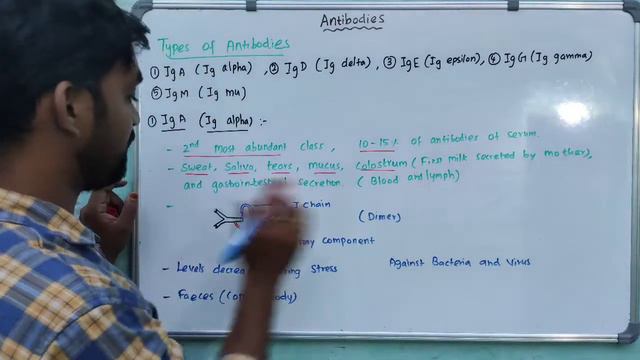 Antibodies
Types of Antibodies
① IgA (Ig alpha), ② IgD (Ig delta), ③ IgE (Ig epsilon), ④ IgG (Ig gamma)
⑤ IgM (Ig mu)
① IgA (Ig alpha) :-
- 2nd most abundant class, 10-15% of antibodies of serum.
- Sweat, Saliva, tears, mucus, colostrum (First milk secreted by mother),
and gastrointestinal secretion. (Blood and lymph)
- J chain
(Dimer)
component
- Levels stress
Against Bacteria and Virus
- Faeces